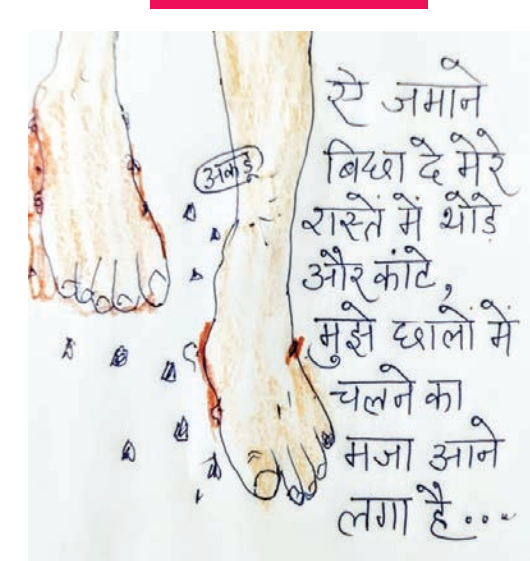 अलडू
ऐ जमाने
बिछा दे मेरे
रास्तें में थोडे
और कांटे,
मुझे छालों में
चलने का
मजा आने
लगा है...